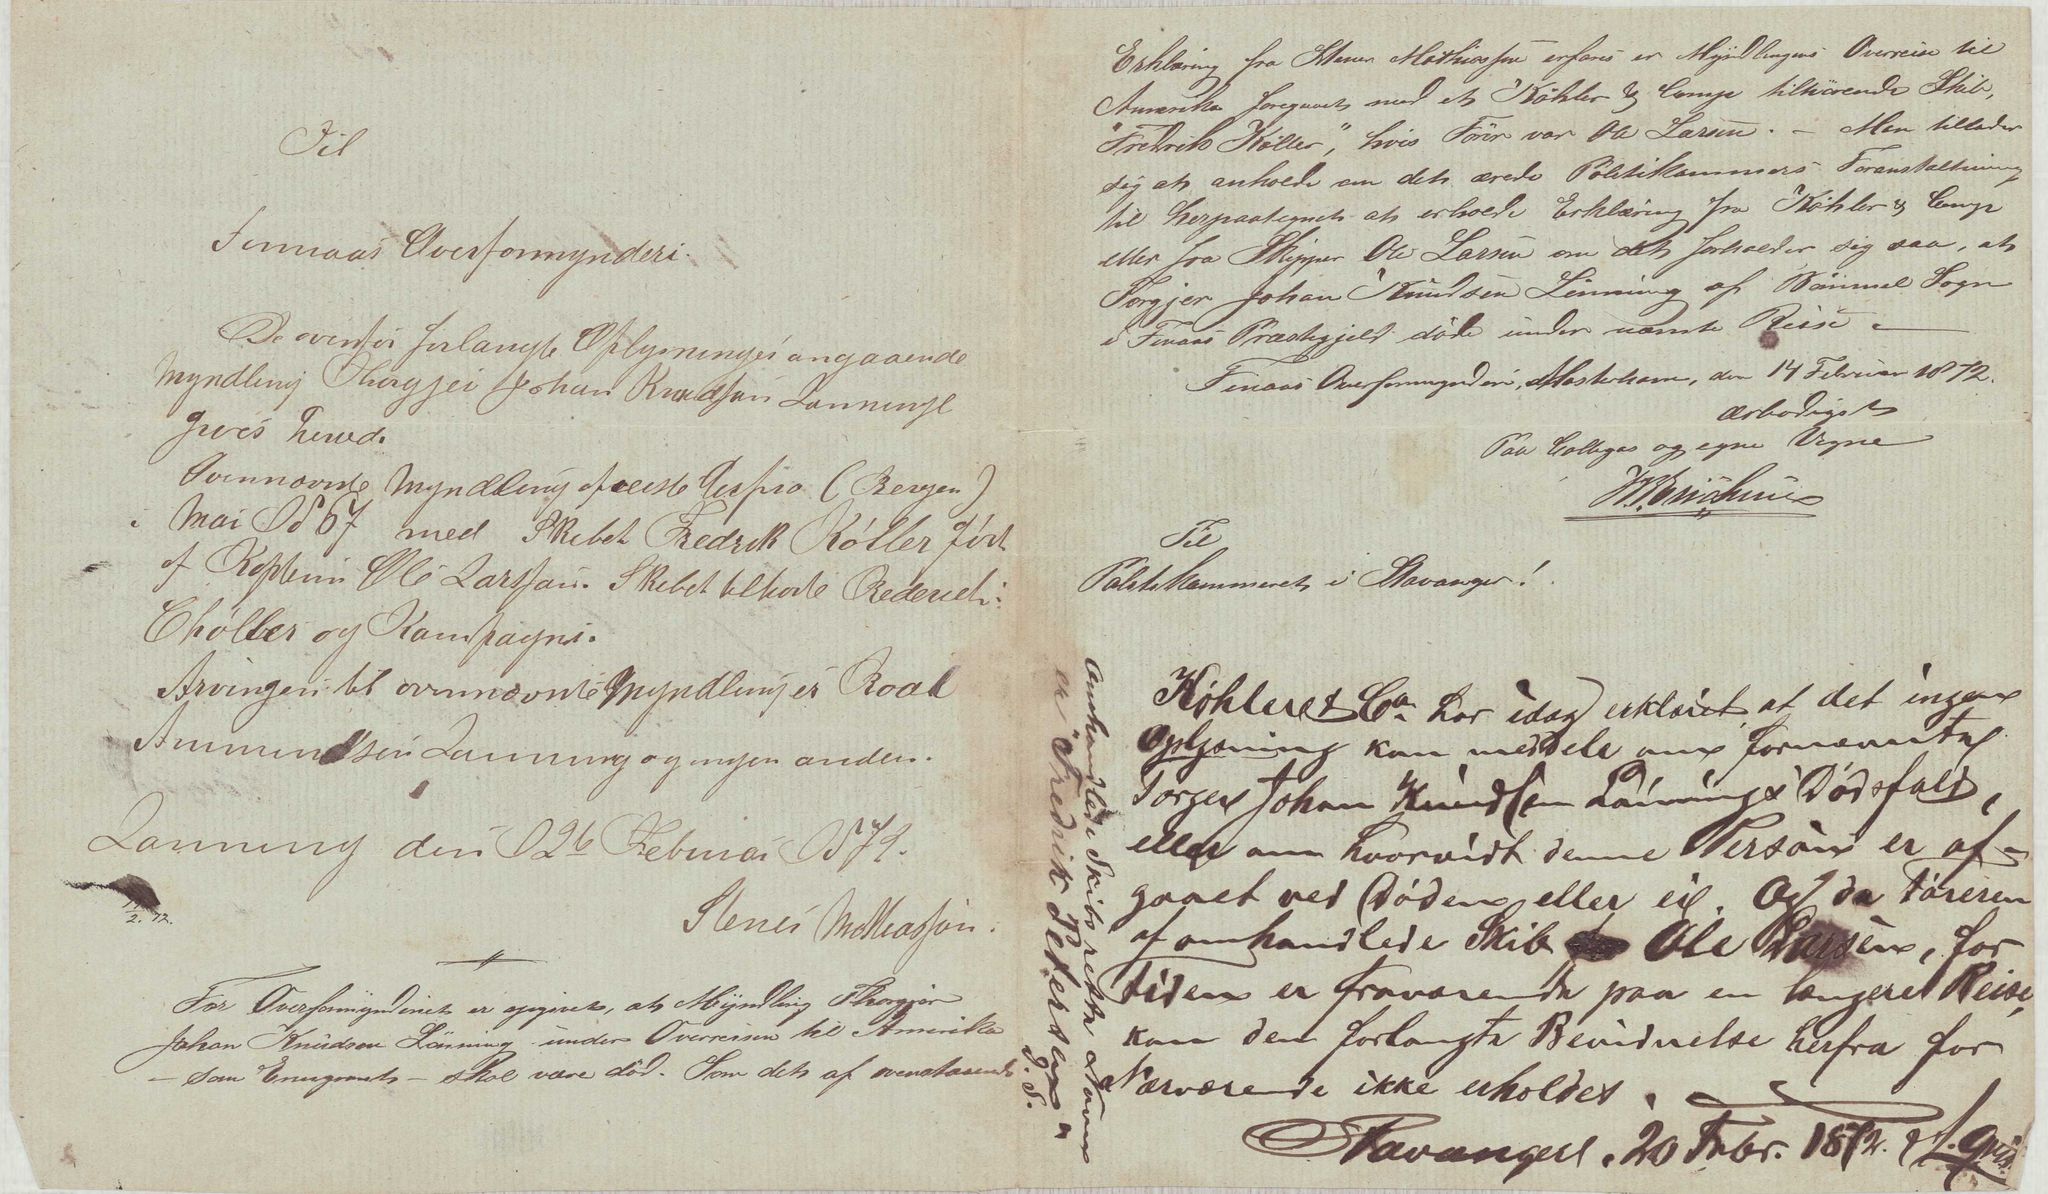 Til
Finnaas Overformynderi.
De ovenfor forlangte Oplysninger angaaende
Myndling Thorgjei Johan Knudsen Lanninge
gives herved.
Ovennævnte Myndling afreiste herfra (Bergen)
i Mai 1867 med Skibet Fredrik Køller ført
af Kaptein Ole Larssan. Skibet tilhørte Rederiet:
Chøller og Kampagni.
Arvingen til ovennævnte Myndling er Roal
Ammundsen Lanning og ingen anden.
Lanning den 26 Februar 1872.
Stener Mathiassan.
1/2. 72.
For Overformynderiet er opgivet, at Myndling Thorgjer
Johan Knudsen Lanning under Overreisen til Amerika
- som Emigrant - skal være död. Som det af ovenstaaende
Erklæring fra Stener Mathiassen erfares er Myndlingens Overreise til
Amerika foregaaet med et Köhler & Comp tilhörende Skib,
"Fredrik Költer", hvis Förer var Ole Larsen. - Man tillader
sig at anholde om det ærede Politikammers Foranstaltning
til herpaategnet at erholde Erklæring fra Köhler & Comp
eller fra Skipper Ole Larsen om det forholder sig saa, at
Torgjer Johan Knudsen Lanning af Bömmel Sogn
i Finaas Præstegjeld döde under nævnte Reise. -
Finaas Overformynderi, Mosterhavn, den 14 Februar 1872.
ærbødigst
Paa Collegas og egne Vegne
Til
Politikammeret i Stavanger!
Köhler & Co. har idag erklæret at det ingen
Oplysning kan meddele om fornævnte
Torger Johan Knudsen Lannings Dødsfald,
eller om hvorvidt denne Person er af-
gaaet ved Døden eller ei. Og da Føreren
af omhandlede Skib Ole Larsen, for
tiden er fraværende paa en længere Reise,
kan den forlangte Bevidnelse herfra for
Nærværende ikke erholdes.
Stavanger, 20 Febr. 1872.
Omhandlede Skibs rette Navn
er "Fredrik Petersen"
D. S.